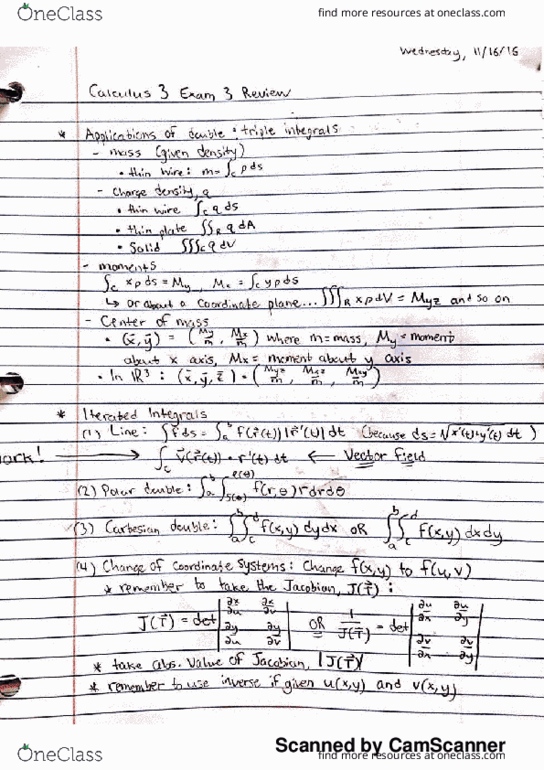 OneClass
find more resources at oneclass.com
Wednesday, 11/16/16
Calculus 3 Exam 3 Review
* Applications of double & triple integrals
- mass (given density)
• thin wire: m = ∫_C ρ ds
- Charge density, q
• thin wire ∫_C q ds
• thin plate ∬_R q dA
• Solid ∭_C q dV
- moments
∫_C xρ ds = My, Mx = ∫_C yρ ds
↳ or about a coordinate plane... ∭_R xρ dV = Myz and so on
- Center of mass
• (x̄, ȳ) = (My/m, Mx/m) where m = mass, My = moment
about x axis, Mx = moment about y axis
• In ℝ³: (x̄, ȳ, z̄) = (Myz/m, Mxz/m, Mxy/m)
* Iterated Integrals
(1) Line: ∫f ds = ∫_a^b f(r⃗(t)) |r⃗'(t)| dt (because ds = √x'(t)+y'(t) dt)
work! → ∫_C v⃗(r⃗(t)) • r'(t) dt ← Vector Field
(2) Polar double: ∫_a^b ∫_{s(θ)}^{e(θ)} f(r,θ) r dr dθ
(3) Cartesian double: ∫_a^b ∫_c^d f(x,y) dy dx OR ∫_a^b ∫_c^d f(x,y) dx dy
(4) Change of Coordinate Systems: Change f(x,y) to f(u,v)
* remember to take the Jacobian, J(T⃗):
J(T⃗) = det |∂x/∂u ∂x/∂v ∂y/∂u ∂y/∂v| OR 1/J(T⃗) = det |∂u/∂x ∂u/∂y ∂v/∂x ∂v/∂y|
* take abs. value of Jacobian, |J(T⃗)|
* remember to use inverse if given u(x,y) and v(x,y)
Scanned by CamScanner
OneClass
find more resources at oneclass.com